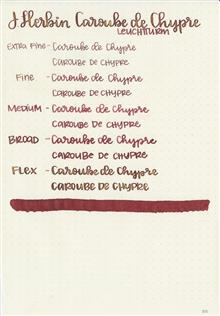 J Herbin Caroube de Chypre
LEUCHTTURM
EXTRA FINE - Caroube de Chypre
CAROUBE DE CHYPRE
FINE - Caroube de Chypre
CAROUBE DE CHYPRE
MEDIUM - Caroube de Chypre
CAROUBE DE CHYPRE
BROAD - Caroube de Chypre
CAROUBE DE CHYPRE
FLEX - Caroube de Chypre
CAROUBE DE CHYPRE